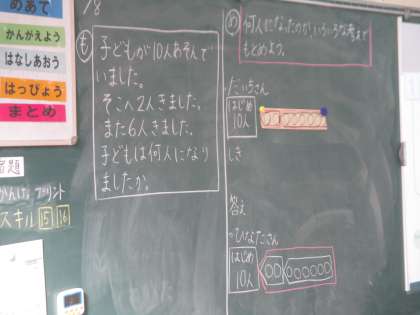 めあて
かんがえよう
はなしあおう
はっぴょう
まとめ
宿題
プリント
スキル 15 16
18
も
子どもが10人あそんで
いました。
そこへ2人きました。
また6人きました。
子どもは何人になり
ましたか。
め
何人になったのかいろいろな考えで
もとめよう。
だいちさん
はじめ
10人
しき
答え
ひなたさん
はじめ
10人